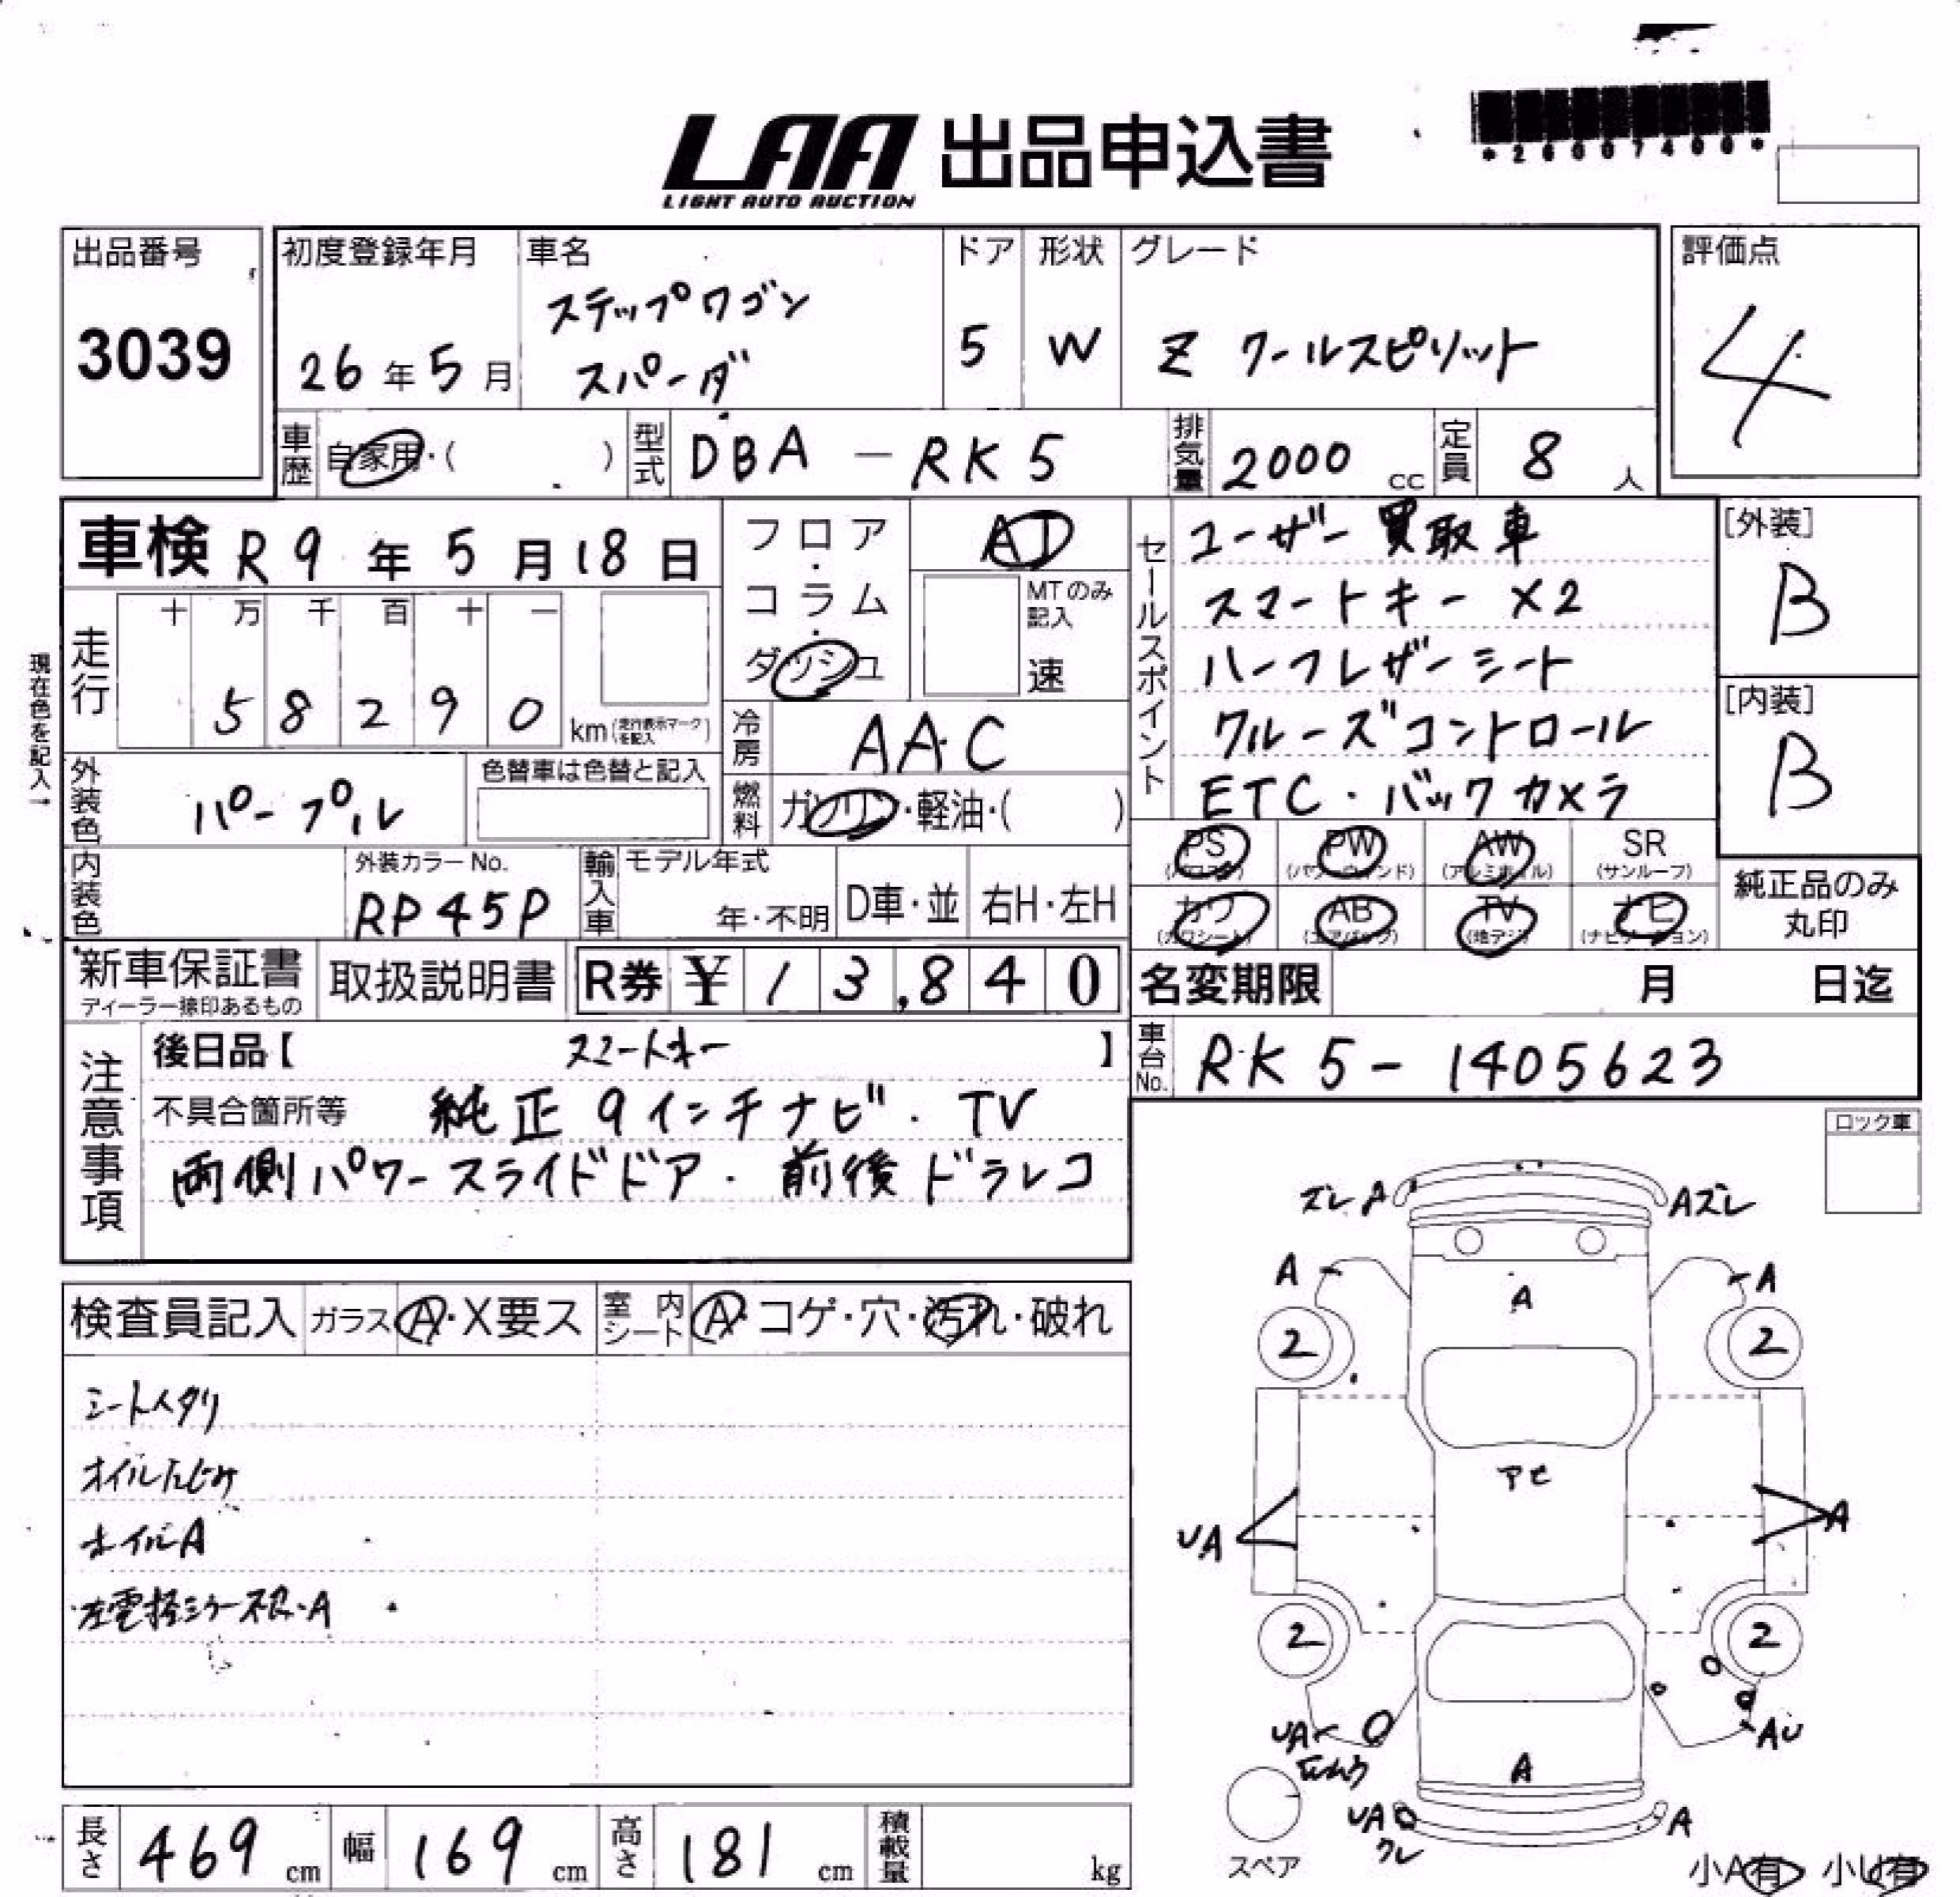 LAA 出品申込書
LIGHT AUTO AUCTION
*26007400*
出品番号
3039
初度登録年月
26年5月
車名
ステップワゴン
スパーダ
ドア
5
形状
W
グレード
Z クールスピリット
評価点
4
車歴 自家用・( )
型式 DBA-RK5
排気量 2000 cc
定員 8 人
車検 R9年5月18日
フロア・コラム・ダッシュ
AT
MTのみ記入
速
現在色を記入→
走行
十 万 千 百 十 一
5 8 2 9 0 km
(走行表示マークを記入)
冷房 AAC
外装色 パープル
色替車は色替と記入
燃料 ガソリン・軽油・( )
内装色
外装カラーNo.
RP45P
輸入車
モデル年式
年・不明
D車・並
右H・左H
セールスポイント
ユーザー買取車
スマートキー X2
ハーフレザーシート
クルーズコントロール
ETC・バックカメラ
[外装]
B
[内装]
B
PS PW AW SR
(パワステ) (パワーウインド) (アルミホイル) (サンルーフ)
カワ AB TV ナビ
(カワシート) (エアバック) (地デジ) (ナビゲーション)
純正品のみ
丸印
新車保証書
ディーラー捺印あるもの
取扱説明書
R券 ¥13,840
名変期限 月 日迄
車台No. RK5-1405623
注意事項
後日品【 スマートキー 】
不具合箇所等 純正9インチナビ・TV
両側パワースライドドア・前後ドラレコ
ロック車
検査員記入
ガラス A・X要ス
室内シート A・コゲ・穴・汚れ・破れ
シートヘタリ
オイルにじみ
ホイルA
左電格ミラー不良・A
ズレ A
Aズレ
A
A
A
2
2
アセ
UA
A
2
2
UA
AU
A
UA
ワレ
A
スペア
小A有 小U有
長さ 469 cm
幅 169 cm
高さ 181 cm
積載量 kg